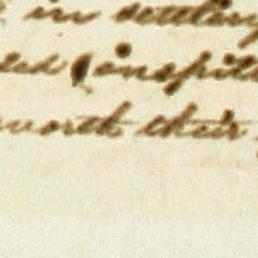 in settling
inspite
worth their